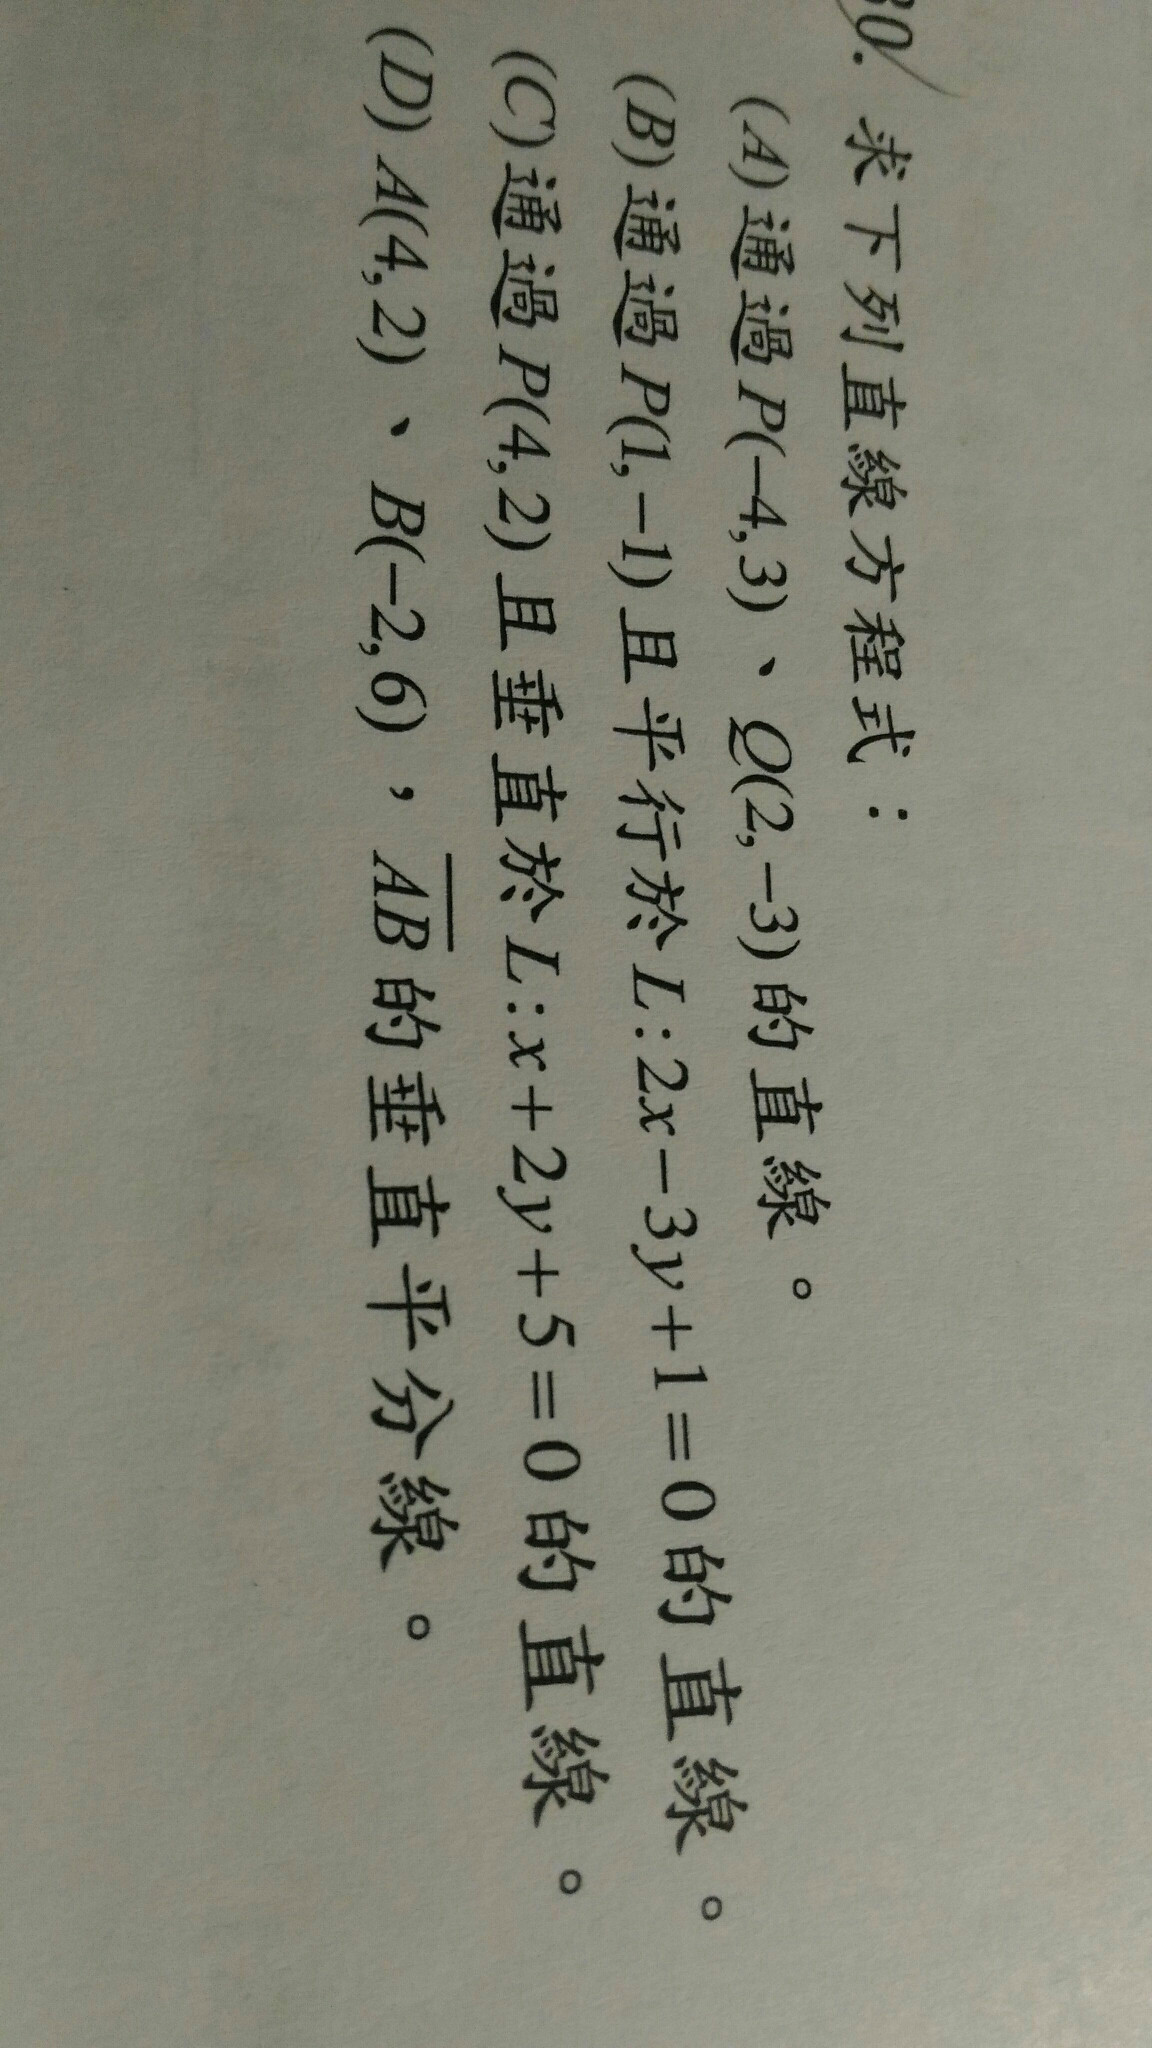 30. 求下列直線方程式：
(A)通過P(−4,3)、Q(2,−3)的直線。
(B)通過P(1,−1)且平行於L:2x−3y+1=0的直線。
(C)通過P(4,2)且垂直於L:x+2y+5=0的直線。
(D)A(4,2)、B(−2,6)，A̅B̅的垂直平分線。